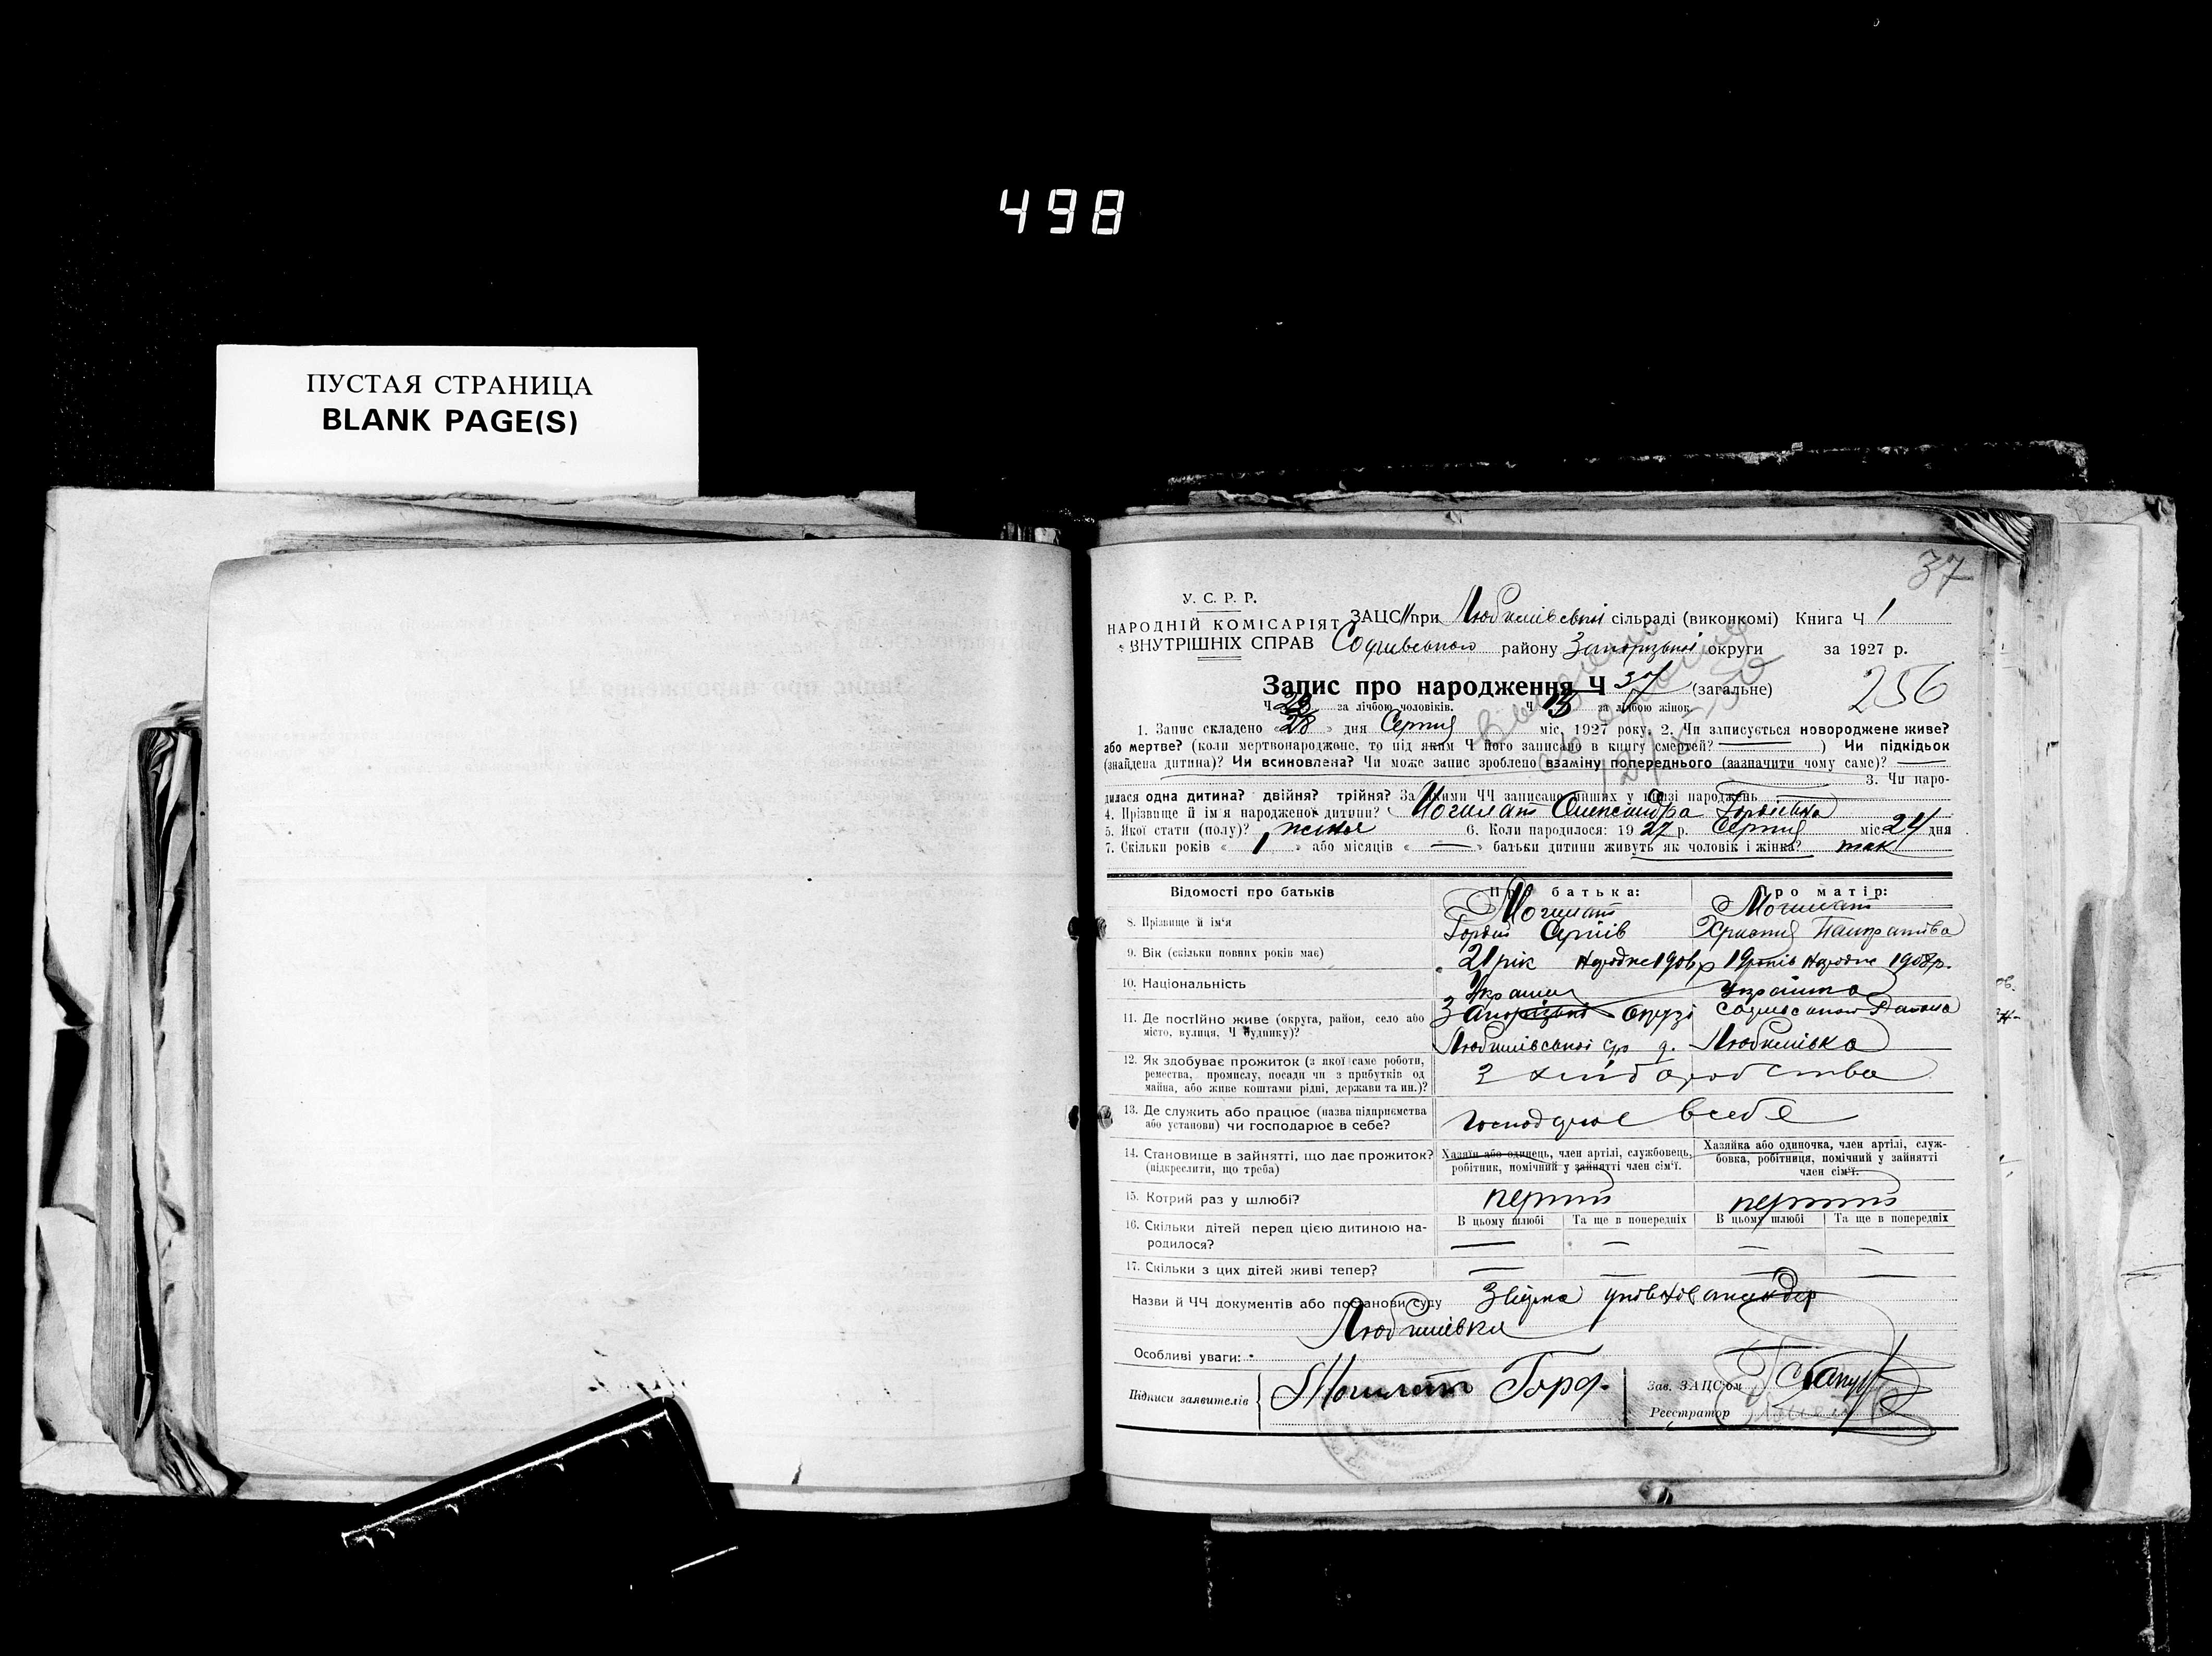 498
ПУСТАЯ СТРАНИЦА
BLANK PAGE(S)
37
У. С. Р. Р.
НАРОДНІЙ КОМІСАРІЯТ
ВНУТРІШНІХ СПРАВ
ЗАЦС при Любимівській сільраді (виконкомі) Книга Ч 1
району Запорізької округи за 1927 р.
Запис про народження Ч 37 (загальне)
256
Ч за лічбою чоловіків. Ч 15 за лічбою жінок
1. Запис складено «28» дня Серпня міс. 1927 року. 2. Чи записується новороджене живе?
або мертве? (коли мертвонароджене, то під яким Ч його записано в книгу смертей? —) Чи підкідьок
(знайдена дитина)? Чи всиновлена? Чи може запис зроблено взаміну попереднього (зазначити чому саме)? —
3. Чи наро-
дилася одна дитина? двійня? трійня? За якими ЧЧ записано инших у книзі народжень
4. Прізвище й ім'я народженої дитини? Могилат Олександра Гордіївна
5. Якої стати (полу)? жіноч 6. Коли народилося: 1927 р. Серпня міс 24 дня
7. Скільки років « 1 » або місяців « — » батьки дитини живуть як чоловік і жінка? так
Відомості про батьків
Про батька:
Про матір:
8. Прізвище й ім'я
Могилат
Гордій Сергіїв
Могилат
Христия Панкратова
9. Вік (скільки повних років має)
21 рік 1906 р
19 років 1908 р.
10. Національність
Українец
Українка
11. Де постійно живе (округа, район, село або
місто, вулиця, Ч будинку)?
Запорізької округі
Любимівської с/р Любимівка
12. Як здобуває прожиток (з якої саме роботи,
ремества, промислу, посади чи з прибутків од
майна, або живе коштами рідні, держави та ин.)?
З хліборобства
13. Де служить або працює (назва підприємства
або установи) чи господарює в себе?
господарює в себе
14. Становище в зайнятті, що дає прожиток?
(підкреслити, що треба)
Хазяїн або одинець, член артілі, службовець,
робітник, помічний у зайнятті член сім'ї.
Хазяйка або одиночка, член артілі, служ-
бовка, робітниця, помічний у зайнятті
член сім'ї.
15. Котрий раз у шлюбі?
перший
перший
16. Скільки дітей перед цією дитиною на-
родилося?
В цьому шлюбі Та ще в попередніх В цьому шлюбі Та ще в попередніх
— — — —
17. Скільки з цих дітей живі тепер?
— — — —
Назви й ЧЧ документів або постанови суду
Любимівки
Особливі уваги:
Підписи заявителів Могилат Горд.
Зав. ЗАЦС'ом
Реєстратор